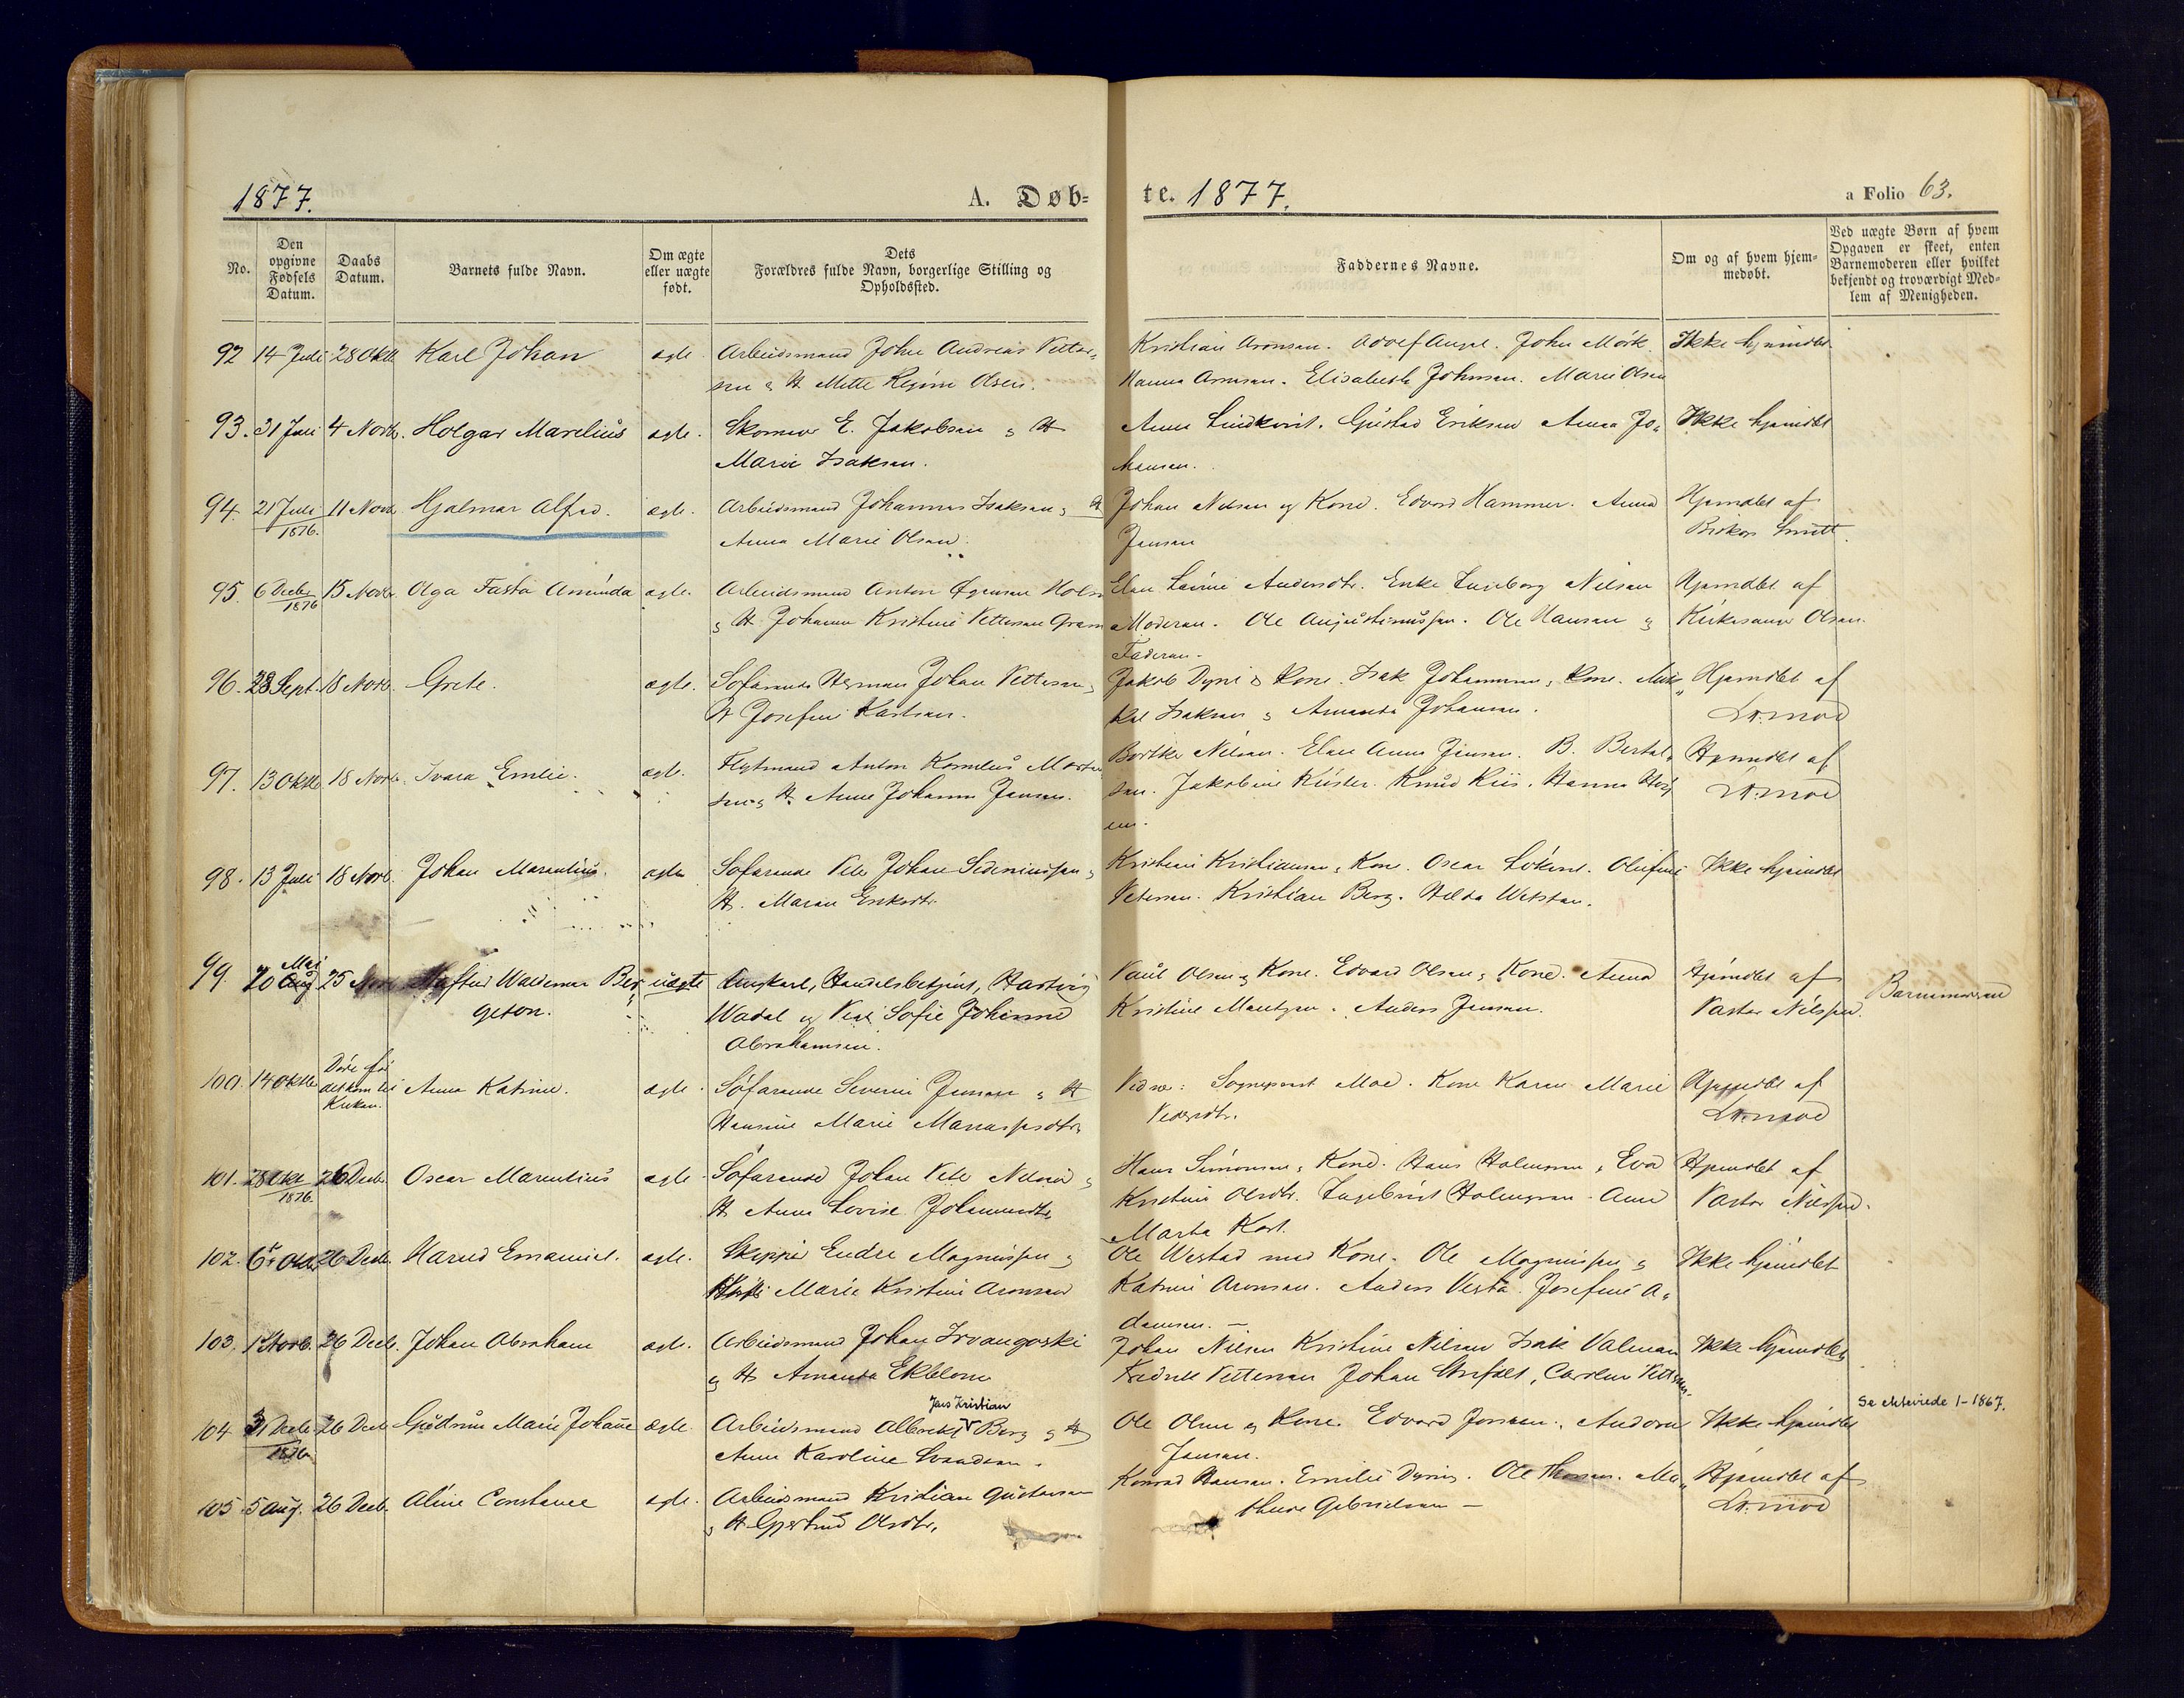 1877.
A. Døb-
te. 1877.
a Folio 63.
No.
Den
opgivne
Fødsels
Datum.
Daabs
Datum.
Barnets fulde Navn.
Om ægte
eller uægte
født.
Dets
Forældres fulde Navn, borgerlige Stilling og
Opholdssted.
Faddernes Navne.
Om og af hvem hjem-
medøbt.
Ved uægte Børn af hvem
Opgaven er skeet, enten
Barnemoderen eller hvilket
bekjendt og troværdigt Med-
lem af Menigheden.
92 14 Juli 28 Oktb. Karl Johan ægte. Arbeidsmand Johan Andreas Petter-
sen & H. Mette Regine Olsen.
Kristian Aronsen. John Mörk. Ikke hjemdöbt
Hanna Aronsen. Elisabeth Johnsen. Marie Olsen
93. 31 Juli 4 Novb. Holgar Marelius ægte. Skomar E. Jakobsen & H
Marie Isaksen.
Anna Lindkvist. Gustad Eriksen Anna Jo-
hansen.
Ikke hjemdöbt
94. 21 Juli 11 Novb. Hjalmar Alfred. ægte. Arbeidsmand Johannes Isaksen & H
1876.
Anna Marie Olsen.
Johan Nilsen og Kone. Edvard Hammer. Anna
Jensen
Hjemdöbt af
Smitt.
95. 6 Decbr 15 Novb. Olga Fasta Aminda ægte. Arbeidsmand Anton Holm
1876
& H. Johanna Kristine Pettersen Gram
Elen Andersdtr. Enke Ingeborg Nilsen
Moderen. Ole Augustinussen. Ole Hansen &
Faderen.
Hjemdöbt af
Kirkesanger Olsen.
96. 28 Sept. 18 Novb. Grete. ægte. Söfarende Herman Johan Pettersen &
H Josefine Karlsen.
Jakob Dyni & Kone. Isak Johannesen & Kone. Mik-
kal Isaksen & Amanda Johansen.
Hjemdöbt af
97. 13 Oktb 18 Novb. Ivara Emilie. ægte. Flytmand Anton Kornelius Morten
sen & H. Anne Johanna Jensen.
Nilsen. Elen Anna Jensen. B. Bertel-
sen. Jakobine Küsler. Knud Kiis. Hanna
Hjemdöbt af
98. 13 Juli 18 Novb. Johan Marentius. ægte Söfarende Peter Johan Sideniussen &
H. Maren Eriksdtr.
Kristine Kristiansen & Kone. Oscar Lökene. Olufine
Petersen. Kristian Berg. Hilda Wetstan.
Ikke hjemdöbt
99. Mai
20 Aug 25 Novb Haftur Waldemar Ber- uægte Ungkarl, Handelsbetjent, Hartvig
geton.
Wadel og Pige Sofie Johanne
Abrahamsen.
Paul Olsen & Kone. Edvard Olsen & Kone. Anna
Kristine Mentzen. Anders Jensen.
Hjemdöbt af
Pastor Nilssen.
Barnemoderen
100. 14 Oktb Döde för
det kom til
Kirken. Anna Katrine. ægte. Söfarende Severin Jensen & H
Hansine Marie
Vidne: Sogneprest Moe. Kone Karen Marie
Pedersdtr.
Hjemdöbt af
101. 28 Okt 26 Decb. Oscar Marentius ægte. Söfarende Johan Peter Nilsen &
1876.
H. Anna Lovise Johannesdtr.
Hans Simonsen & Kone. Hans Holmgren, Eva
Kristine Olsdtr. Ingebrigt Holmgren. Anne
Marta Karl.
Hjemdöbt af
Pastor Nilssen.
102. 6 Oktb 26 Decb. Harald Emanuel. ægte. Skipper Endre Magnussen &
Marie Kristine Aronsen
Ole Westad med Kone. Ole Magnussen &
Katrine Aronsen. Anders Vesta. Josefine A-
damsen.
Ikke hjemdöbt
103. 1 Novb. 26 Decb. Johan Abraham ægte. Arbeidsmand Johan
& H Amanda Ekblom
Johan Nilsen Kristine Nilsen Isak Valman
Fredrik Pettersen Johan
Ikke hjemdöbt
104 31 Decb 26 Decb Gudrun Marie Johanne ægte. Arbeidsmand Albrekt Jens Kristian Berg & H
1876
Anne Karoline Svendsen.
Ole Olsen & Kone. Edvard Jensen. Andora
Jensen.
Ikke hjemdöbt
Se ekteviede 1-1867.
105. 5 Aug. 26 Decb. Aline Constance ægte. Arbeidsmand Kristian Gustavsen
& H Gjertrud Olsdtr.
Konrad Hansen. Emilie Dyring. Ole Thomsen. Ma-
thea Gabrielsen
Hjemdöbt af